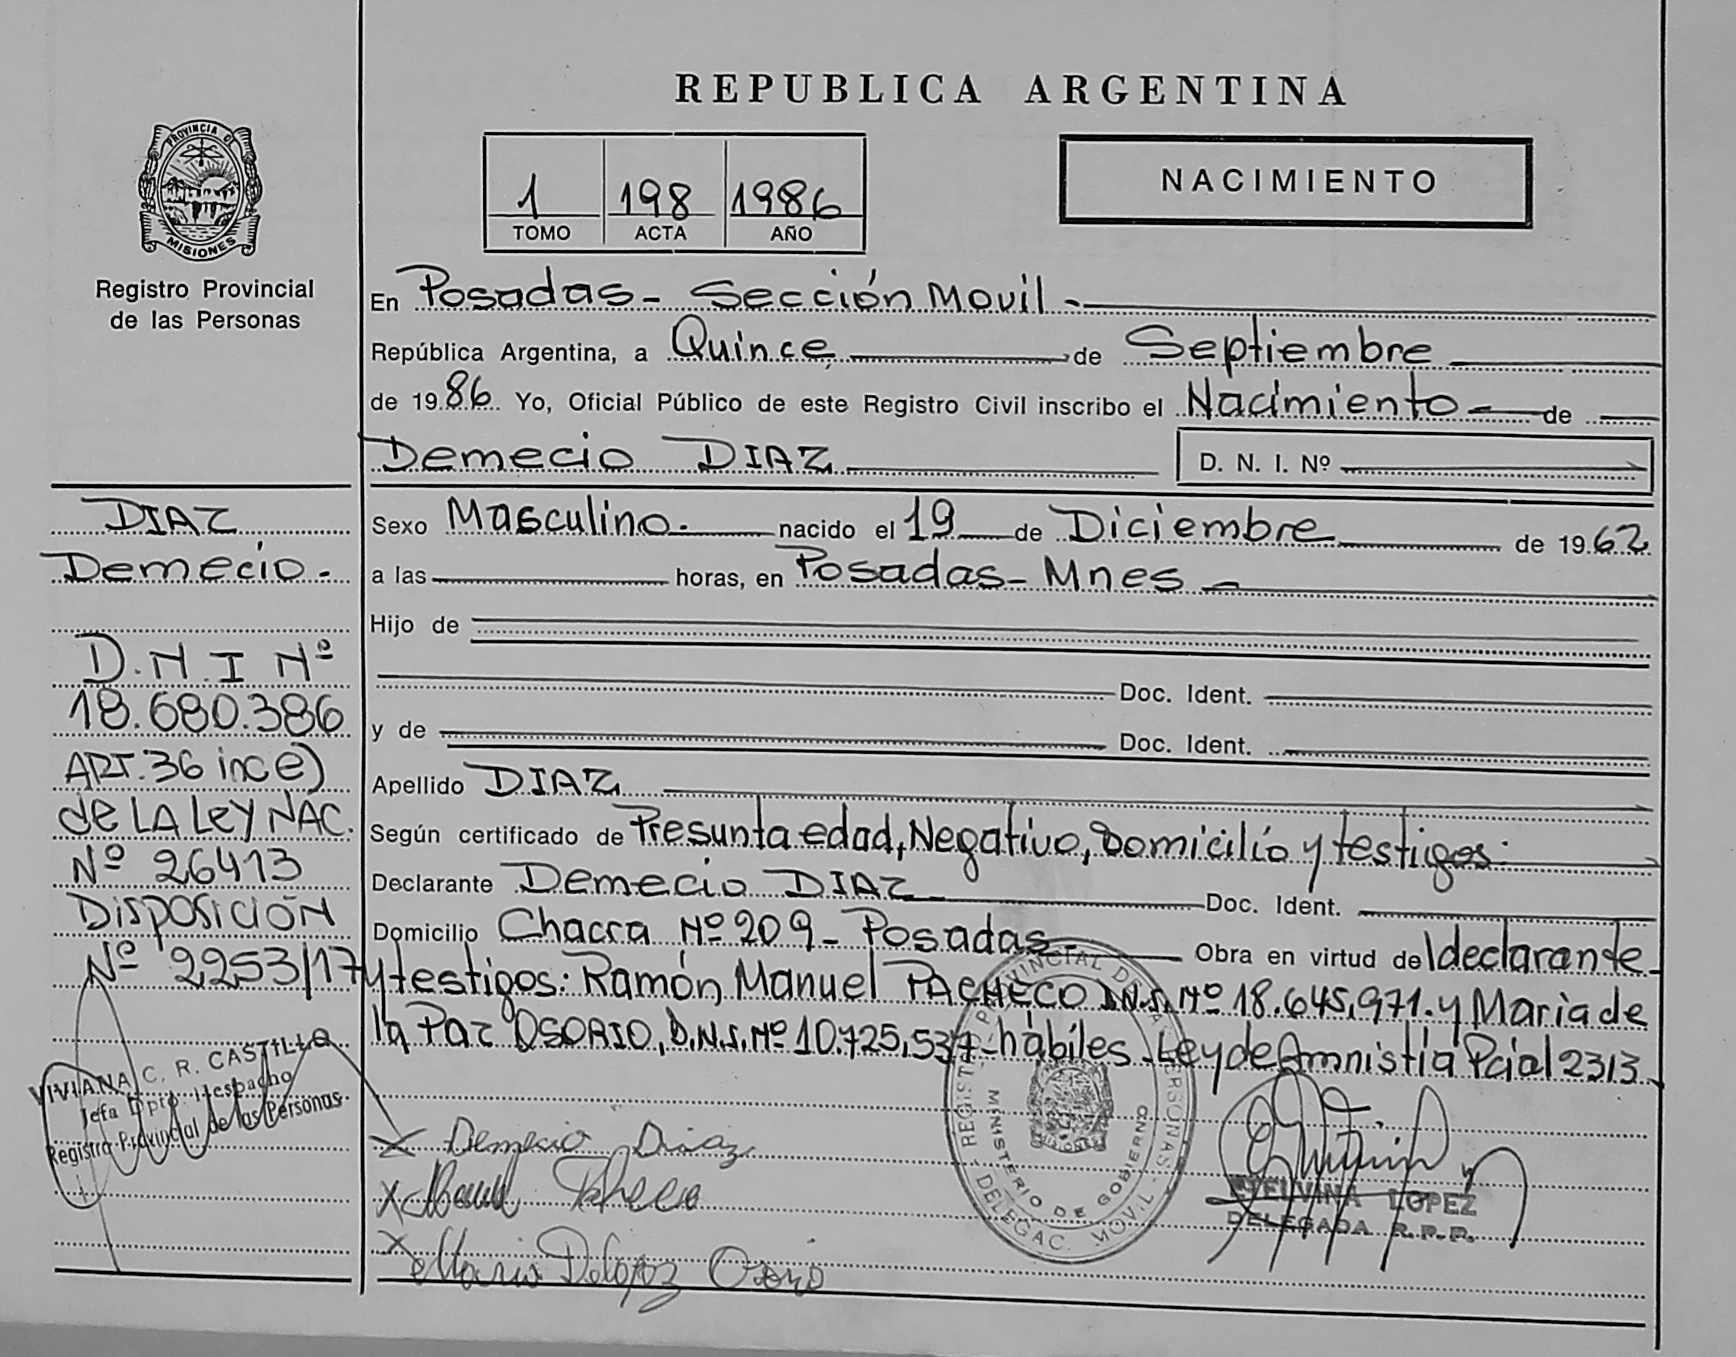 REPUBLICA ARGENTINA
PROVINCIA DE
MISIONES
Registro Provincial
de las Personas
1 198 1986
TOMO ACTA AÑO
NACIMIENTO
En Posadas - Sección Movil -
República Argentina, a Quince de Septiembre
de 1986 Yo, Oficial Público de este Registro Civil inscribo el Nacimiento - de
Demecio DIAZ
D. N. I. Nº
DIAZ
Demecio -
D.N I Nº
18.680.386
ART. 36 inc e)
de LA Ley NAC.
Nº 26413
Disposición
Nº 2253/17
VIVIANA C. R. CASTILLO
Jefa Dpto. Despacho
Registro Provincial de las Personas
Sexo Masculino. nacido el 19 de Diciembre de 1962
a las horas, en Posadas - Mnes -
Hijo de
Doc. Ident.
y de Doc. Ident.
Apellido DIAZ
Según certificado de Presunta edad, Negativo, Domicilio y testigos.
Declarante Demecio DIAZ Doc. Ident.
Domicilio Chacra Nº 209 - Posadas - Obra en virtud de l declarante
y testigos: Ramón Manuel PACHECO D.N.I. Nº 18.645.971. y Maria de
la Paz OSORIO, D.N.I. Nº 10.725.537 - hábiles - Ley de Amnistía Pcial 2313.
Demecio Diaz
REGISTRO PROVINCIAL DE LAS PERSONAS
MINISTERIO DE GOBIERNO
DELEGAC. MOVIL
ETELVINA LOPEZ
DELEGADA R.P.P.